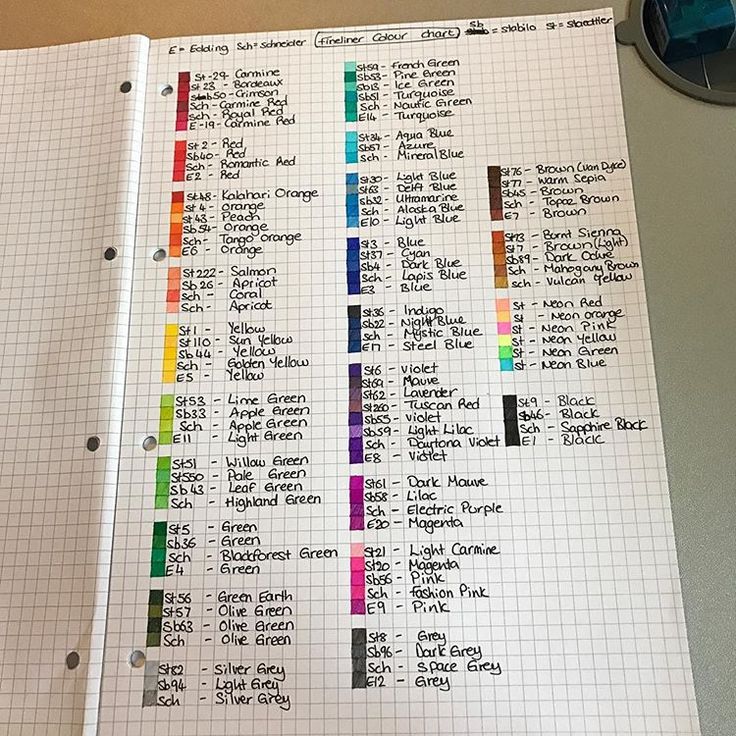 E = Edding Sch = Schneider (Fineliner Colour Chart) Sb = Stabilo St = Staedtler
St-29- Carmine
St 23 - Bordeaux
Sb50 - Crimson
Sch - Carmine Red
Sch - Royal Red
E-19 - Carmine Red
St 2 - Red
Sb40 - Red
Sch - Romantic Red
E2 - Red
St48 - Kalahari Orange
St 4 - Orange
St 43 - Peach
Sb 54 - Orange
Sch - Tango Orange
E6 - Orange
St 222 - Salmon
Sb 26 - Apricot
Sch - Coral
Sch - Apricot
St 1 - Yellow
St 110 - Sun Yellow
Sb 44 - Yellow
Sch - Golden Yellow
E 5 - Yellow
St53 - Lime Green
Sb33 - Apple Green
Sch - Apple Green
E11 - Light Green
St51 - Willow Green
St550 - Pale Green
Sb 43 - Leaf Green
Sch - Highland Green
St 5 - Green
Sb36 - Green
Sch - Blackforest Green
E4 - Green
St56 - Green Earth
St57 - Olive Green
Sb63 - Olive Green
Sch - Olive Green
St82 - Silver Grey
Sb94 - Light Grey
Sch - Silver Grey
St59 - French Green
Sb53 - Pine Green
Sb13 - Ice Green
Sb51 - Turquoise
Sch - Nautic Green
E14 - Turquoise
St34 - Aqua Blue
Sb57 - Azure
Sch - Mineral Blue
St30 - Light Blue
St63 - Delft Blue
Sb32 - Ultramarine
Sch - Alaska Blue
E10 - Light Blue
St3 - Blue
St37 - Cyan
Sb4 - Dark Blue
Sch - Lapis Blue
E3 - Blue
St36 - Indigo
Sb22 - Night Blue
Sch - Mystic Blue
E17 - Steel Blue
St6 - Violet
St69 - Mauve
St62 - Lavender
St260 - Tuscan Red
Sb55 - Violet
Sb59 - Light Lilac
Sch - Daytona Violet
E8 - Violet
St61 - Dark Mauve
Sb58 - Lilac
Sch - Electric Purple
E20 - Magenta
St21 - Light Carmine
St20 - Magenta
Sb56 - Pink
Sch - Fashion Pink
E9 - Pink
St8 - Grey
Sb96 - Dark Grey
Sch - Space Grey
E12 - Grey
St76 - Brown (Van Dyce)
St77 - Warm Sepia
Sb45 - Brown
Sch - Topaz Brown
E7 - Brown
St73 - Burnt Sienna
St 7 - Brown (Light)
Sb89 - Dark Ochre
Sch - Mahogany Brown
Sch - Vulcan Yellow
St - Neon Red
St - Neon Orange
St - Neon Pink
St - Neon Yellow
St - Neon Green
St - Neon Blue
St9 - Black
Sb46 - Black
Sch - Sapphire Black
E1 - Black